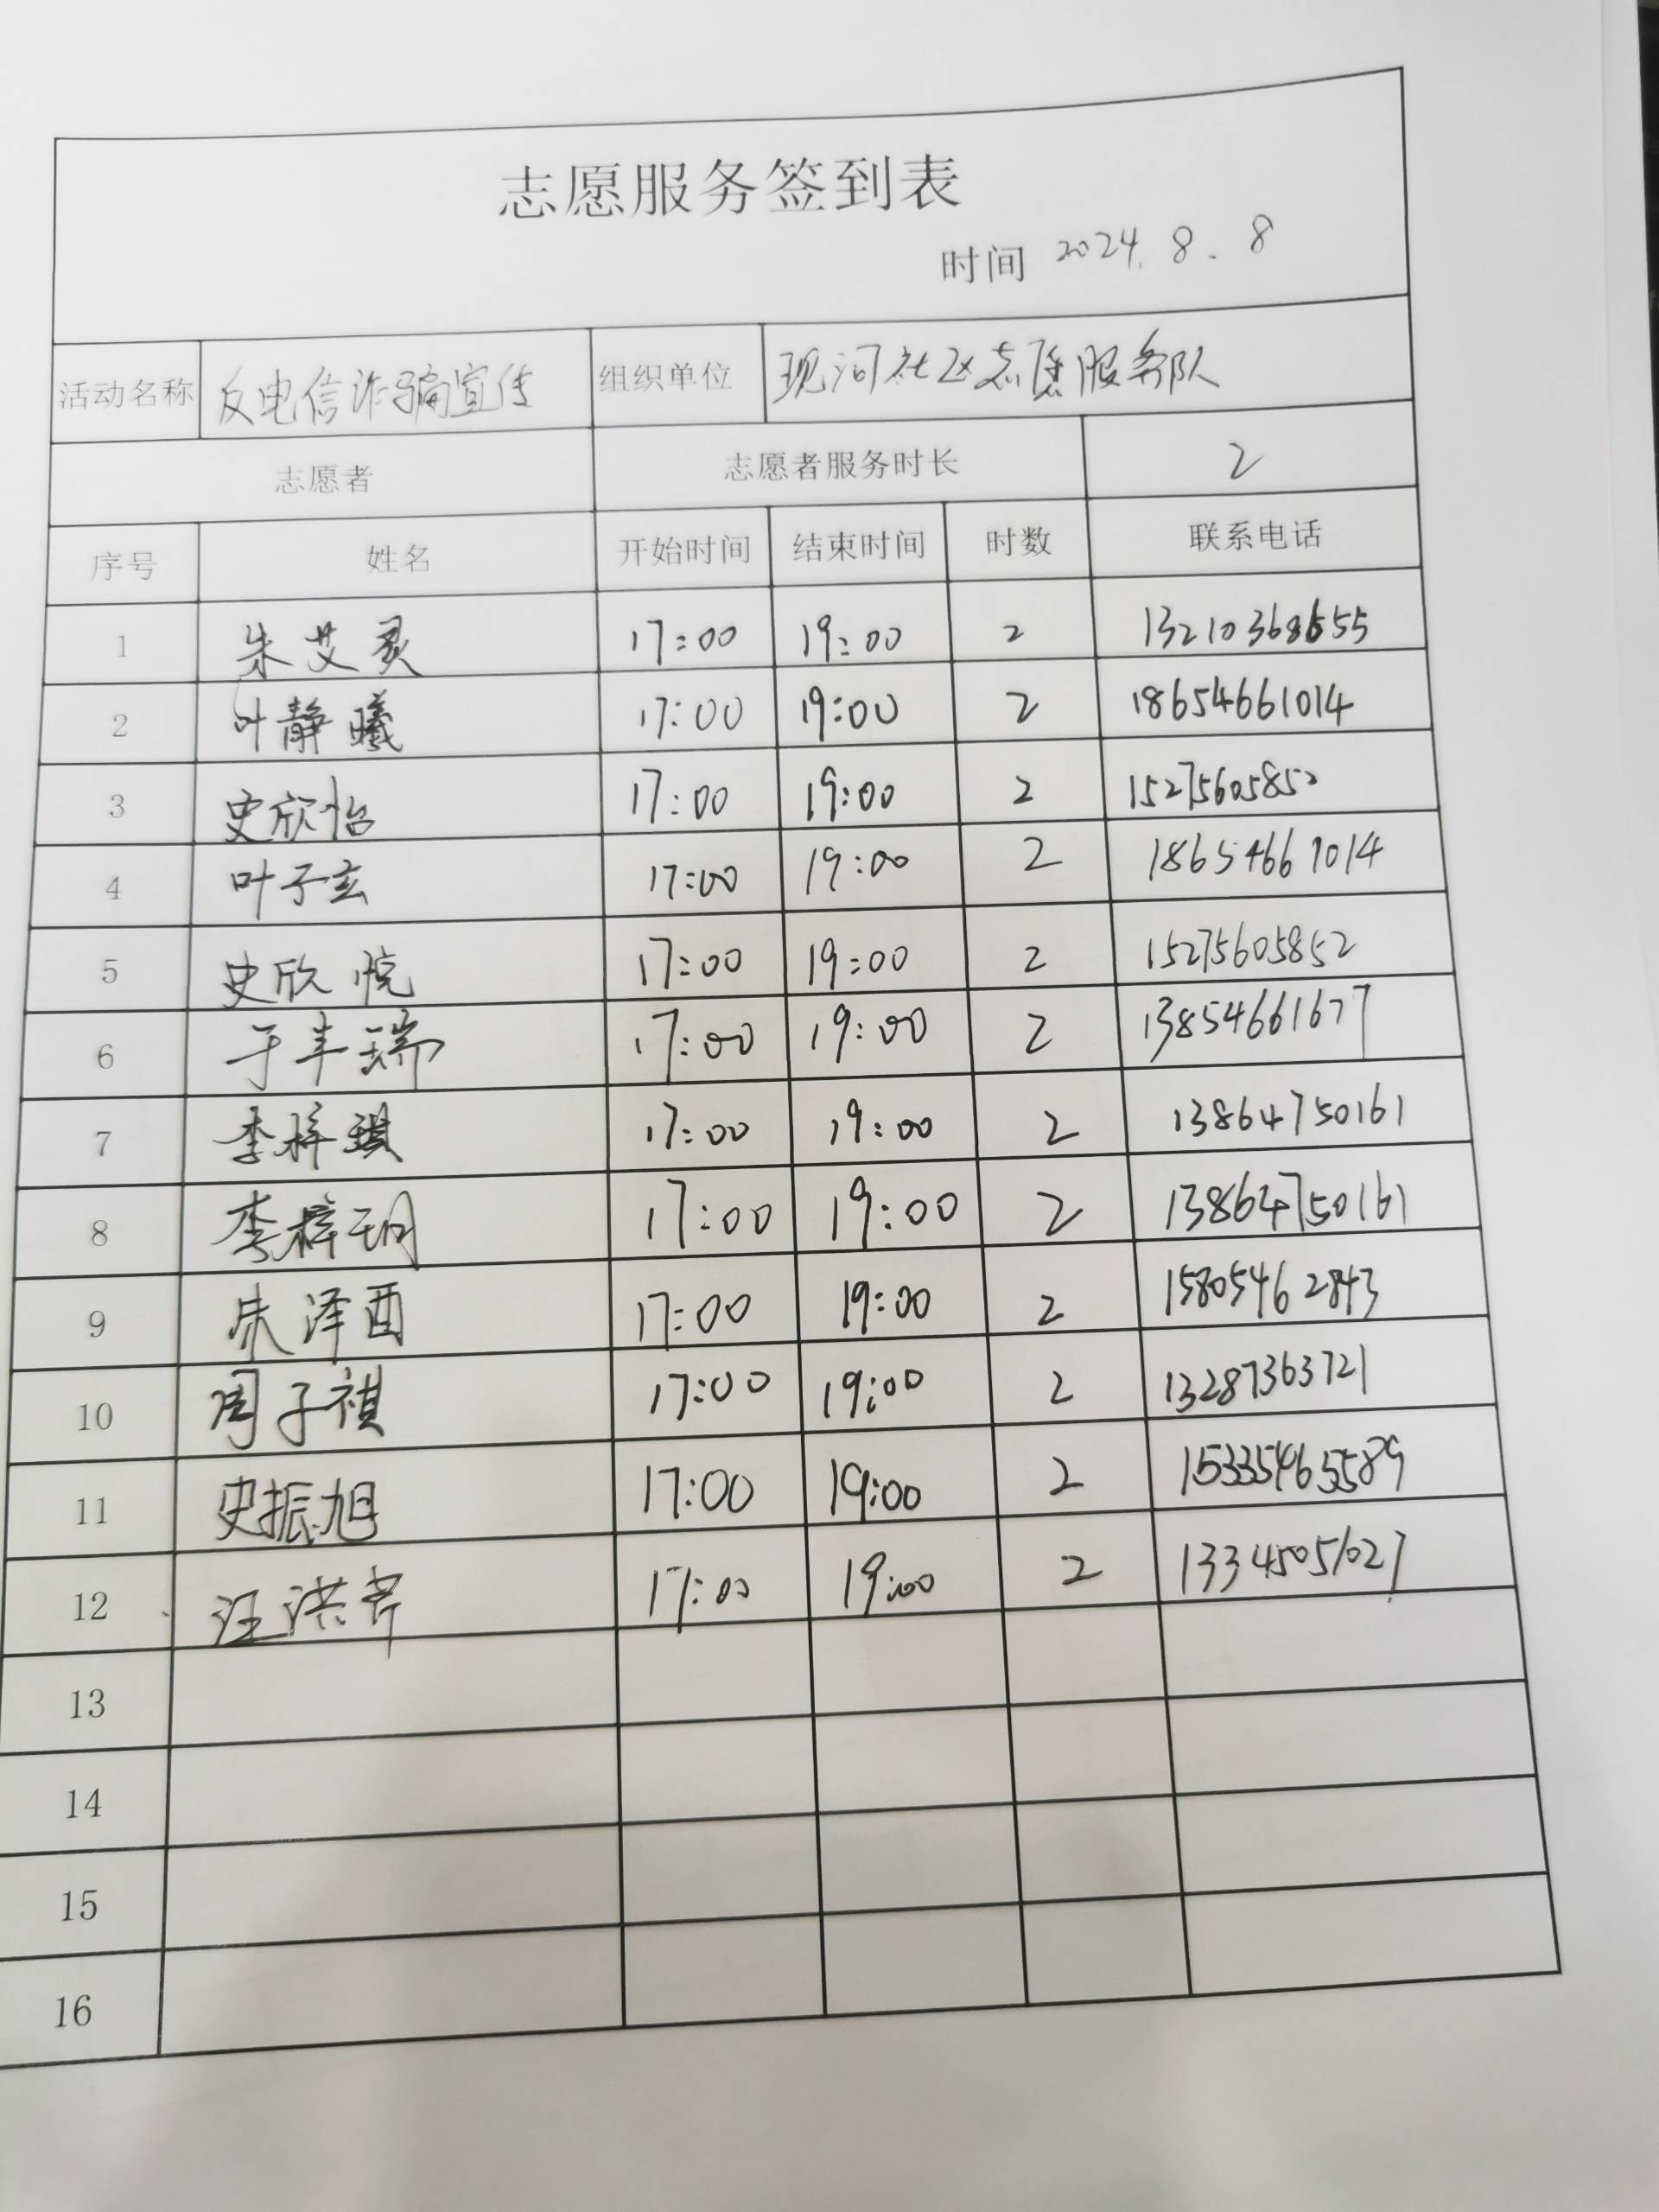 志愿服务签到表
时间 2024.8.8
活动名称 反电信诈骗宣传 组织单位 现河社区志愿服务队
志愿者 志愿者服务时长 2
序号 姓名 开始时间 结束时间 时数 联系电话
1 朱艾灵 17:00 19:00 2 13210368655
2 叶静曦 17:00 19:00 2 18654661014
3 史欣怡 17:00 19:00 2 15275605852
4 叶子玄 17:00 19:00 2 18654661014
5 史欣悦 17:00 19:00 2 15275605852
6 于丰瑞 17:00 19:00 2 13854661677
7 李梓琪 17:00 19:00 2 13864750161
8 李梓玥 17:00 19:00 2 13864750161
9 朱泽酉 17:00 19:00 2 15805462843
10 周子祺 17:00 19:00 2 13287363721
11 史振旭 17:00 19:00 2 15335465589
12 汪洪芹 17:00 19:00 2 13345051027
13
14
15
16